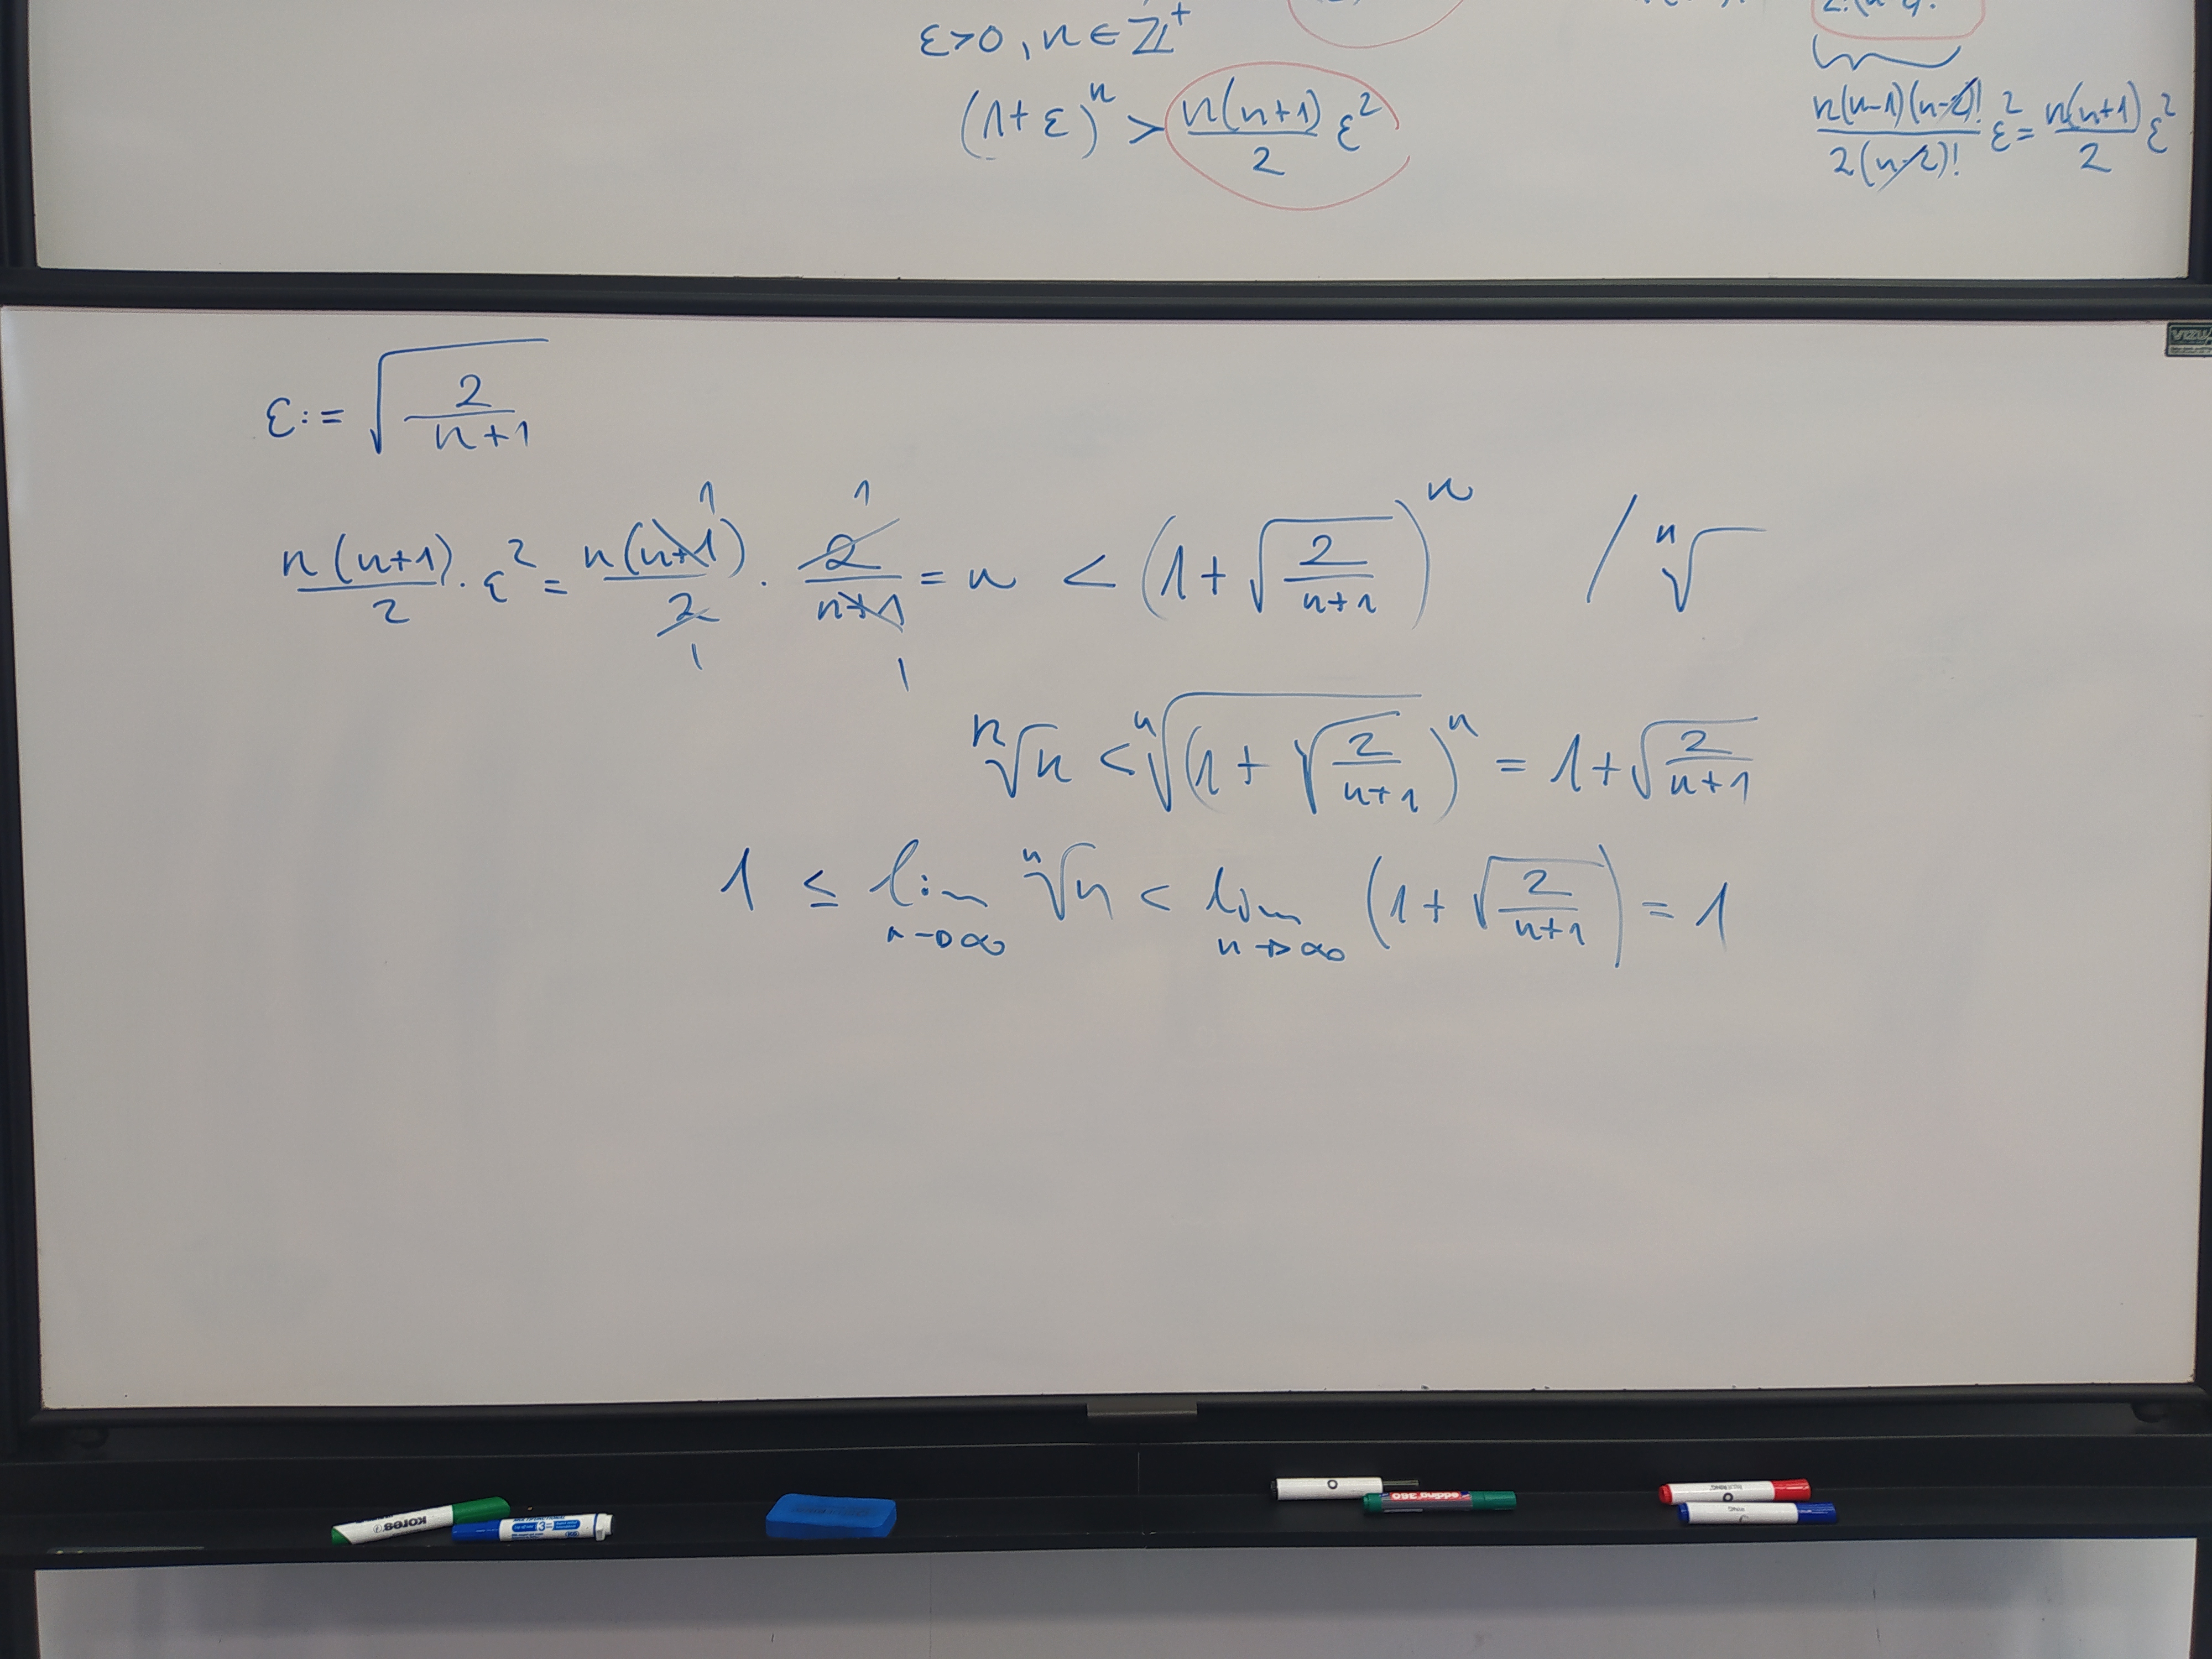 ε>0, n∈ℤ⁺
(1+ε)ⁿ > n(n+1)/2 ε²
n(n-1)(n-2)!/2(n-2)! ε² = n(n+1)/2 ε²
ε := √(2/(n+1))
n(n+1)/2 · ε² = n(n+1)/2 · 2/(n+1) = n < (1+√(2/(n+1)))ⁿ / ⁿ√
ⁿ√n < ⁿ√((1+√(2/(n+1)))ⁿ) = 1+√(2/(n+1))
1 ≤ lim n→∞ ⁿ√n < lim n→∞ (1+√(2/(n+1))) = 1
Kores
edding 360